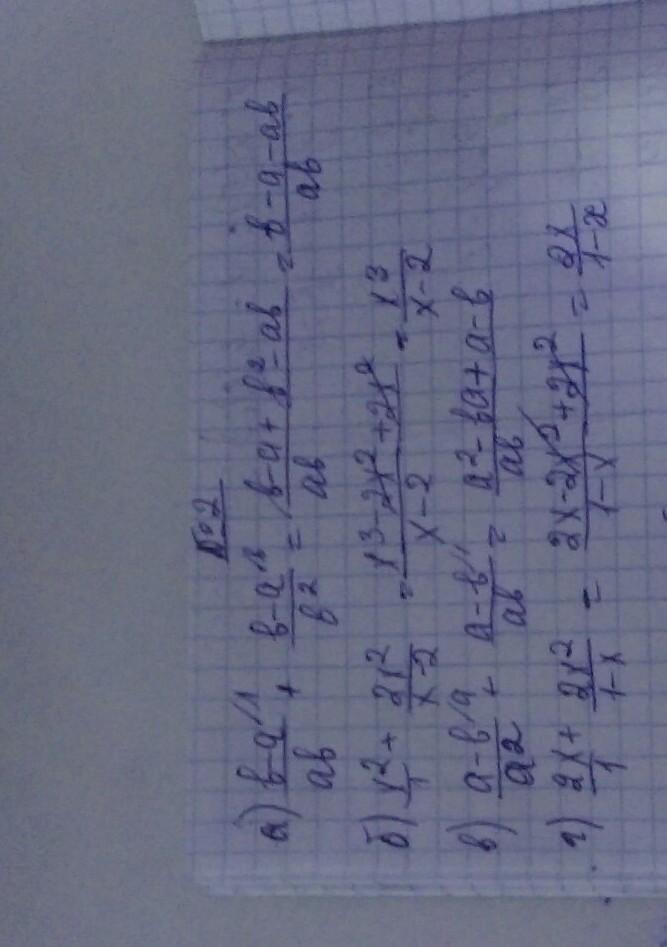 №2
а) (b-a^1)/(ab) + (b-a^b)/(b^2) = (b-a+b^2-ab)/(ab) = (b-a-ab)/(ab)
б) x^2/1 + 2x^2/(x-2) = (x^3-2x^2+2x^2)/(x-2) = x^3/(x-2)
в) (a-b^a)/(a^2) + (a-b^1)/(ab) = (a^2-ba+a-b)/(ab)
г) 2x/1 + 2x^2/(1-x) = (2x-2x^2+2x^2)/(1-x) = 2x/(1-x)